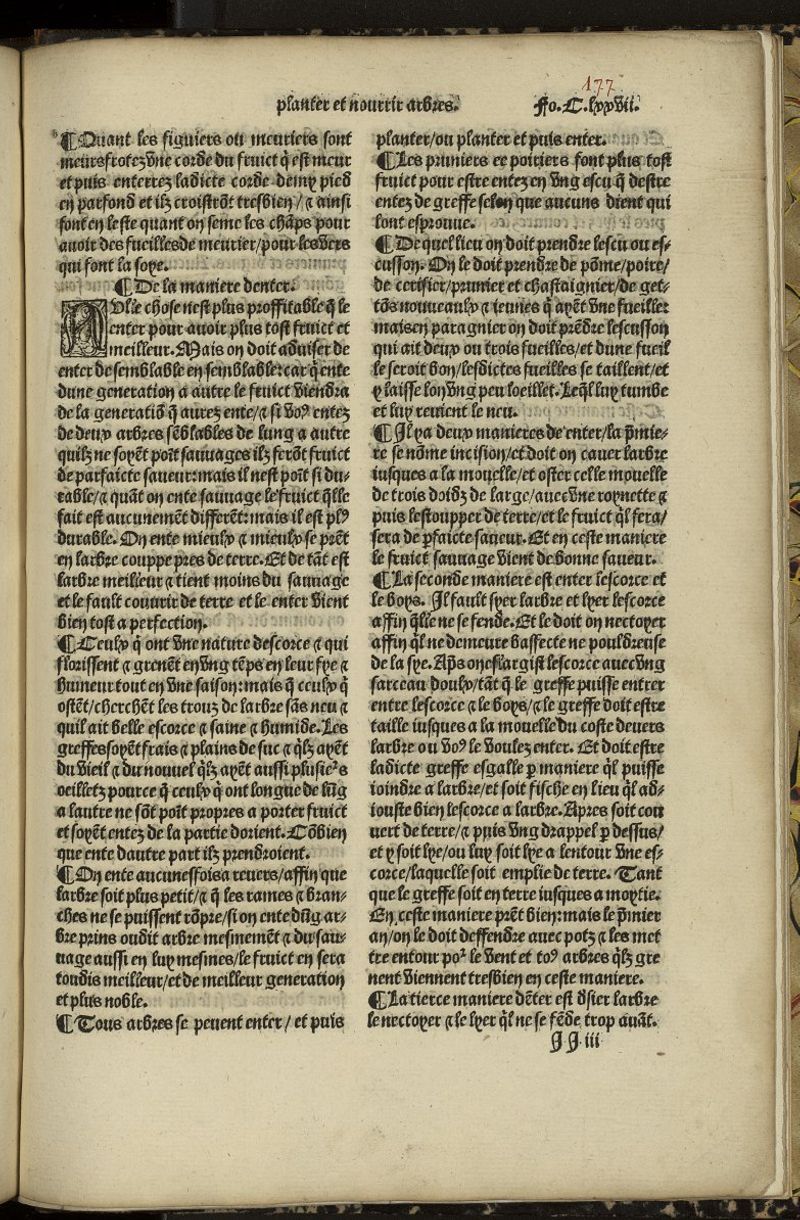 177
planter et nourrir arbres. Fo. C. lxxvii.
¶ Quant les figuiers ou meuriers sont
meurs frotez vne corde du fruict q̄ est meur
et puis enterrez ladicte corde demy pied
en parfond et ilz croistrōt tresbien / ⁊ ainsi
font en leste quant on seme les chāps pour
auoir des fueilles de meurier/pour les vers
qui font la soye.
¶ De la maniere denter.
NUlle chose nest plus proffitable q̄ le
enter pour auoir plus tost fruict et
meilleur. Mais on doit aduiser de
enter de semblable en semblable: car q̄ ente
dune generation a autre le fruict viendra
de la generatiō q̄ aurez ente/⁊ si voꝰ entez
de deux arbres sēblables de lung a autre
quilz ne soyēt poīt sauuages ilz ferōt fruict
de parfaicte saueur: mais il nest poīt si du-
rable/⁊ quāt on ente sauuage le fruict q̄lle
fait est aucunemēt differēt: mais il est plꝰ
durable. On ente mieulx ⁊ mieulx se prēt
en larbre couppe pres de terre. Et de tāt est
larbre meilleur ⁊ tient moins du sauuage
et le fault couurir de terre et le enter vient
bien tost a perfection.
¶ Ceulx q̄ ont vne nature descorce ⁊ qui
florissent ⁊ grenēt en vng tēps en leur sye ⁊
humeur tout en vne saison: mais q̄ ceulx q̄
ostēt/cherchēt les trouz de larbre sās neu ⁊
quil ait belle escorce ⁊ saine ⁊ humide. Les
greffes soyēt frais ⁊ plains de suc ⁊ q̄lz ayēt
du vieil ⁊ du nouuel q̄lz ayēt aussi plusieꝰs
oeilletz pource q̄ ceulx q̄ ont longue de lūg
a lautre ne sōt poīt propres a porter fruict
et soyēt entez de la partie dorient. Cōbien
que ente dautre part ilz prendroient.
¶ On ente aucunessfois a reuers/affin que
larbre soit plus petit/⁊ q̄ les rames ⁊ bran-
ches ne se puissent rōpre/si on ente dūg ar-
bre prins oudit arbre mesmemēt ⁊ du sau-
uage aussi en luy mesmes/le fruict en sera
tousdis meilleur/et de meilleur generation
et plus noble.
¶ Tous arbres se peuent enter / et puis
planter/ou planter et puis enter.
¶ Les pruniers ee poiriers font plus tost
fruict pour estre entez en vng escu q̄ destre
entez de greffe selon que aucuns dient qui
lont esprouue.
¶ De quel lieu on doit prendre lescu ou es-
cusson. On le doit prendre de pōme/poire/
de cerisier/prunier et chastaignier/de get-
tōs nouueaulx ⁊ ieunes q̄ ayēt vne fueille:
mais en paragnier on doit prēdre lescusson
qui ait deux ou trois fueilles/et dune fueil
le seroit bon/lesdictes fueilles se taillent/et
y laisse lon vng peu loeillet. Leq̄l luy tumbe
et luy reuient le neu.
¶ Il y a deux manieres de enter/la p̄mie-
re se nōme incision/et doit on cauer larbre
iusques a la mouelle/et oster celle mouelle
de trois doidz de large/auec vne roynette ⁊
puis lestoupper de terre/et le fruict q̄l fera/
sera de p̄faicte saueur. Et en ceste maniere
le fruict sauuage vient de bonne saueur.
¶ La seconde maniere est enter lescorce et
le boys. Il fault syer larbre et lyer lescorce
affin q̄lle ne se fende. Et le doit on nectoyer
affin q̄l ne demeure bassecte ne pouldreuse
de la sye. Ap̄s on eslargist lescorce auec vng
sarceau doulx/tāt q̄ le greffe puisse entrer
entre lescorce ⁊ le boys/⁊ le greffe doit estre
taille iusques a la mouelle du coste deuers
larbre ou voꝰ le voulez enter. Et doit estre
ladicte greffe esgalle p maniere q̄l puisse
ioindre a larbre/et soit fische en lieu q̄l ad-
iouste bien lescorce a larbre. Apres soit cou
uert de terre/⁊ puis vng drappel p dessus/
et y soit lye/ou luy soit lye a lentour vne es-
corce/laquelle soit emplie de terre. Tant
que le greffe soit en terre iusques a moytie.
En ceste maniere prēt bien: mais le p̄mier
an/on le doit deffendre auec potz ⁊ les met
tre entour poꝰ le vent et toꝰ arbres q̄lz gre
nent viennent tresbien en ceste maniere.
¶ La tierce maniere dēter est dsier larbre
le nectoyer ⁊ le lyer q̄l ne se fēde trop auāt.
JJ iii